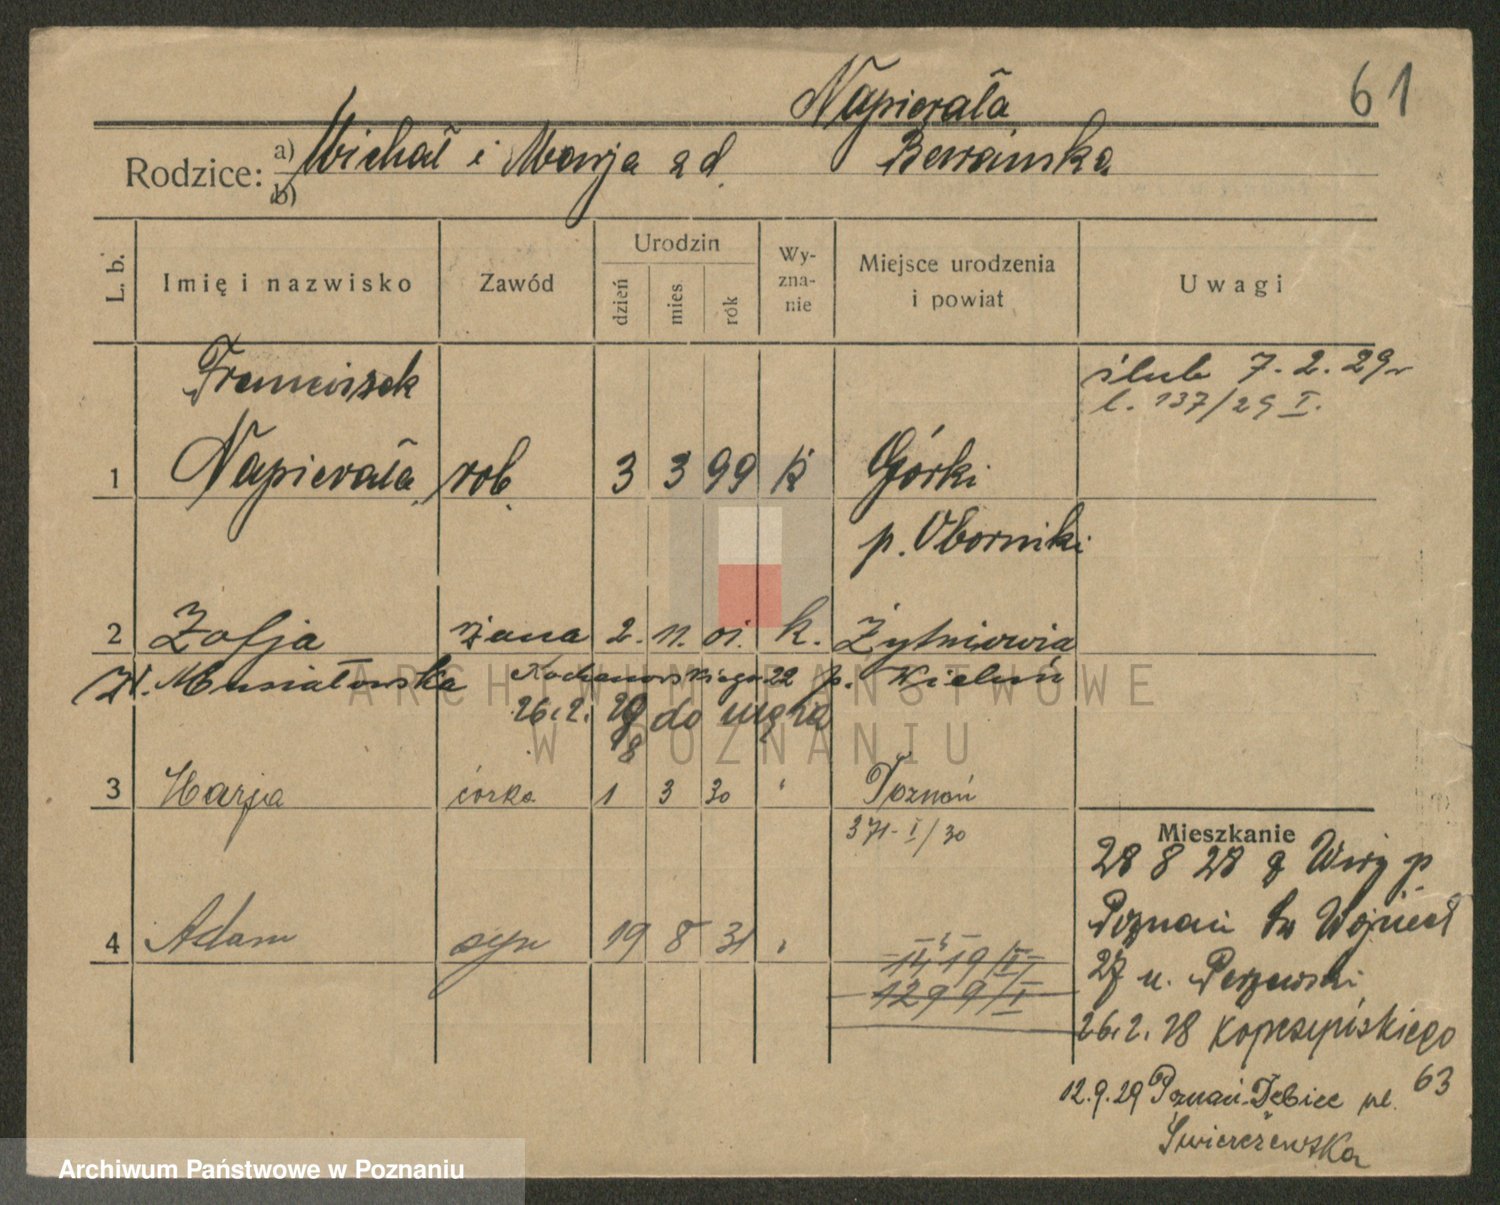 Napierała 61
Rodzice: a) Michał i Marja z d.
b)
L. b. Imię i nazwisko Zawód Urodzin dzień mies rok Wy-zna-nie Miejsce urodzenia i powiat Uwagi
Franciszek ślub 7. 2. 29 r
l. 137/29 I.
1 Napierała rob. 3 3 99 k Górki
p. Oborniki
2 Zofja żona 2. 11. 01. k.
z d. Musiałowska Kochanowskiego 22 p. Wieluń
26. 2. 29 do męża
18
3 Marja córka 1 3 30 " Poznań
371-I/30
Mieszkanie
28 8 28 z Wiry p
4 Adam syn 19 8 31 "
Poznań
1299/I 27 u.
26. 2. 28 Kopczyńskiego
63
12. 9. 29 Poznań-Dębiec ul.
Świerczewska
ARCHIWUM PAŃSTWOWE
W POZNANIU
Archiwum Państwowe w Poznaniu